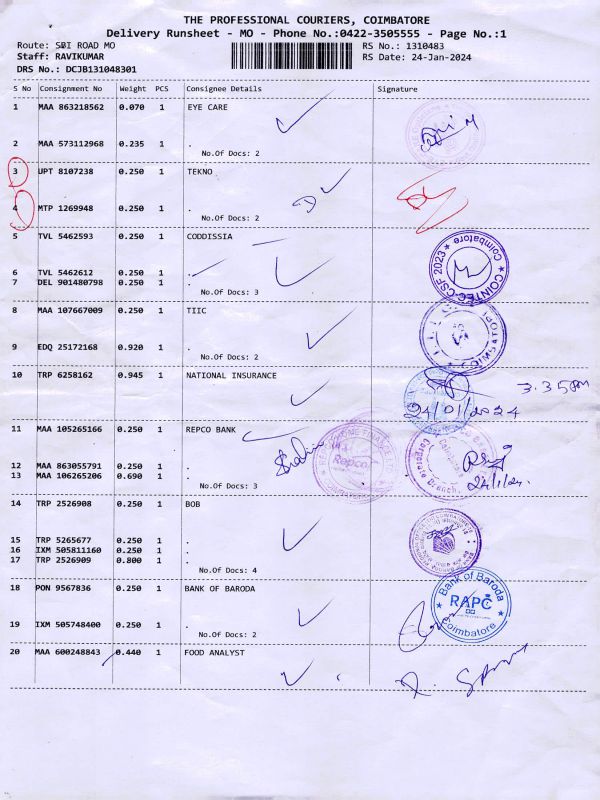 THE PROFESSIONAL COURIERS, COIMBATORE
Delivery Runsheet - MO - Phone No.:0422-3505555 - Page No.:1
Route: SBI ROAD MO RS No.: 1310483
Staff: RAVIKUMAR RS Date: 24-Jan-2024
DRS No.: DCJB131048301
S No Consignment No Weight PCS Consignee Details Signature
1 MAA 863218562 0.070 1 EYE CARE
2 MAA 573112968 0.235 1 .
No.Of Docs: 2
3 UPT 8107238 0.250 1 TEKNO
4 MTP 1269948 0.250 1 .
No.Of Docs: 2
5 TVL 5462593 0.250 1 CODDISSIA
6 TVL 5462612 0.250 1 .
7 DEL 901480798 0.250 1 .
No.Of Docs: 3
COINTEC-CSF 2023
Coimbatore
8 MAA 107667009 0.250 1 TIIC
9 EDQ 25172168 0.920 1 .
No.Of Docs: 2
10 TRP 6258162 0.945 1 NATIONAL INSURANCE
3.35pm
24/01/2024
11 MAA 105265166 0.250 1 REPCO BANK
12 MAA 863055791 0.250 1 .
13 MAA 106265206 0.690 1 .
No.Of Docs: 3
Repco
Corporate Branch
24/1/24
14 TRP 2526908 0.250 1 BOB
15 TRP 5265677 0.250 1 .
16 IXM 505811160 0.250 1 .
17 TRP 2526909 0.800 1 .
No.Of Docs: 4
18 PON 9567836 0.250 1 BANK OF BARODA
19 IXM 505748400 0.250 1 .
No.Of Docs: 2
Bank of Baroda
RAPC
Coimbatore
20 MAA 600248843 0.440 1 FOOD ANALYST